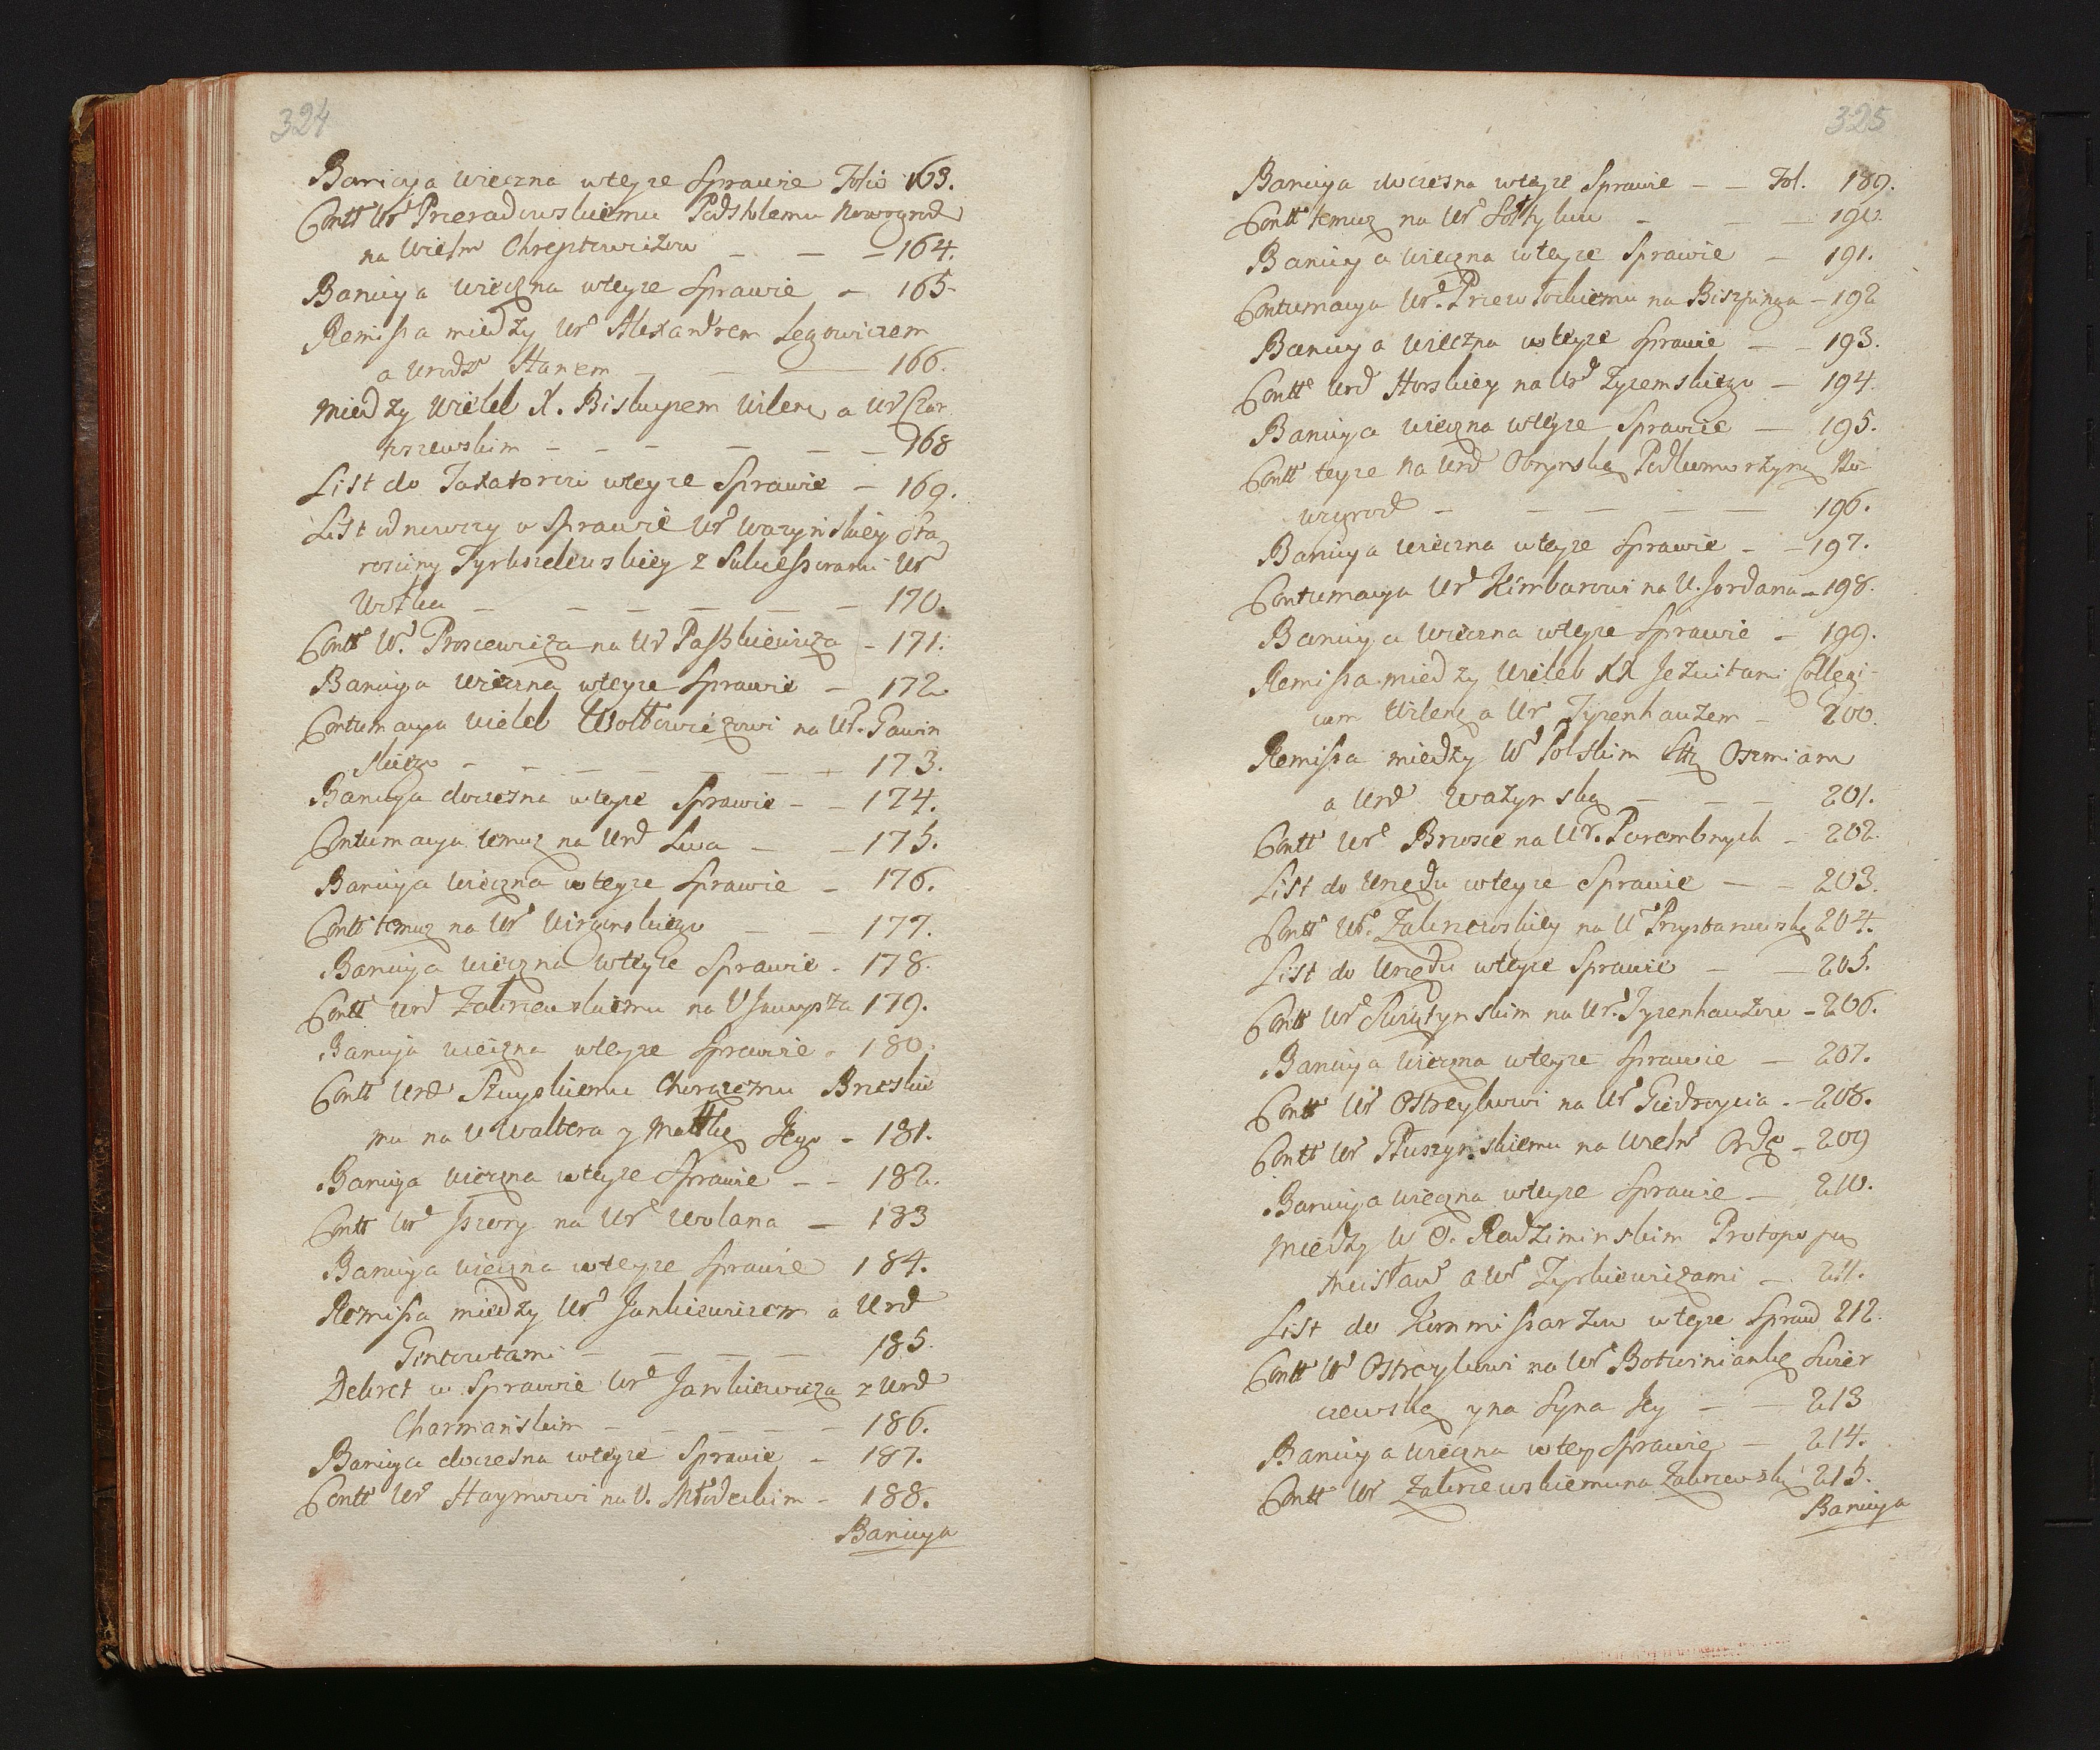 324
Banicya wieczna wteyze Sprawie Folio 163.
Contt Ur Przeradowskiemu Podstolemu Nowogrod
na Wielm Chreptowiczow — — — 164.
Banicya wieczna wteyze Sprawie — 165.
Remissa miedzy Ur Alexandrem Legowiczem
a Urodz Hanem — — — 166.
Miedzy Wieleb X. Biskupem Wilen a Ur Czar
kowskim — — — — — 168
List do Taxatorow wteyze Sprawie — 169.
List odnowczy w Sprawie Ur Wazynskiey Sta
rosciny Tyrkszlewskiey z Sukcessorami Ur
Wolka — — — — — — 170.
Contt W. Proscewicza na Ur Paszkiewicza — 171.
Banicya wieczna wteyze Sprawie — 172.
Contumacya Wieleb Wołłowiczowi na Ur. Gawin
skiego — — — — — — — 173.
Banicya doczesna wteyze Sprawie — — 174.
Contumacya temuz na Urd Lwa — — 175.
Banicya wieczna wteyze Sprawie — 176.
Contt temuz na Ur — — 177.
Banicya wieczna wteyze Sprawie — 178.
Contt Urd Zakrzewskiemu na U 179.
Banicya wieczna wteyze Sprawie — 180.
Contt Urd Szuyskiemu Chorązemu Brzeskie
mu na U Waltera y Matkę Jego — 181.
Banicya wieczna wteyze Sprawie — — 182.
Contt Ur Iszory na Ur Wolana — 183
Banicya wieczna wteyze Sprawie 184.
Remissa miedzy Ur Jankiewiczem a Urd
Gintowtami — — — — 185.
Dekret w Sprawie Urd Jankiewicza z Urd
Charmanskim — — — — — 186.
Banicya doczesna wteyze Sprawie — 187.
Contt Ur Haymowi na U. Młodeckim — 188.
Banicya
325
Banicya doczesna wteyze Sprawie — — Fol. 189.
Contt temuz na Ur Sołtykow — — — 190.
Banicya wieczna wteyze Sprawie — 191.
Contumacya Ur. Przewłockiemu na Biszpinga — 192
Banicya wieczna wteyze Sprawie — — 193.
Contt Urd Horskiey na Urd Zyzemskiego — 194.
Banicya wieczna wteyze Sprawie — 195.
Contt teyze na Urd Obrynską Podkomorzynę No
wogrod — — — — — 196.
Banicya wieczna wteyze Sprawie — — 197.
Contumacya Urd Kimbarowi na U. Jordana — 198.
Banicya wieczna wteyze Sprawie — 199.
Remissa miedzy Wieleb XX Jezuitami Collegi-
um Wilen a Ur Tyzenhauzem — 200.
Remissa miedzy W Polskim Oszmiam
a Urd Wazynską — — — 201.
Contt Ur Brzosce na Ur. Porembnych — 202.
List do Urzędu wteyze Sprawie — — 203.
Contt Ur. Zakrzewskiey na U Przystanowską 204.
List do Urzędu wteyze Sprawie — — 205.
Contt Ur Swiętynskim na Ur. Tyzenhauzow — 206.
Banicya wieczna wteyze Sprawie — 207.
Contt Ur Ostreykowi na Ur Giedroycia — 208.
Contt Ur Pluszynskiemu na Wielm Ordę — 209
Banicya wieczna wteyze Sprawie — 210.
Miedzy W O. Radziminskim Protopopą
Mcisław a Ur Zyrkiewiczami — 211.
List do Kommissarzow wteyze Spraw 212.
Contt Ur Ostreykowi na Ur Botwiniankę Swier
czewską y na Syna Jey — — 213
Banicya wieczna wtey Sprawie — 214.
Contt Ur Zakrzewskiemu na Zakrzewską 215.
Banicya